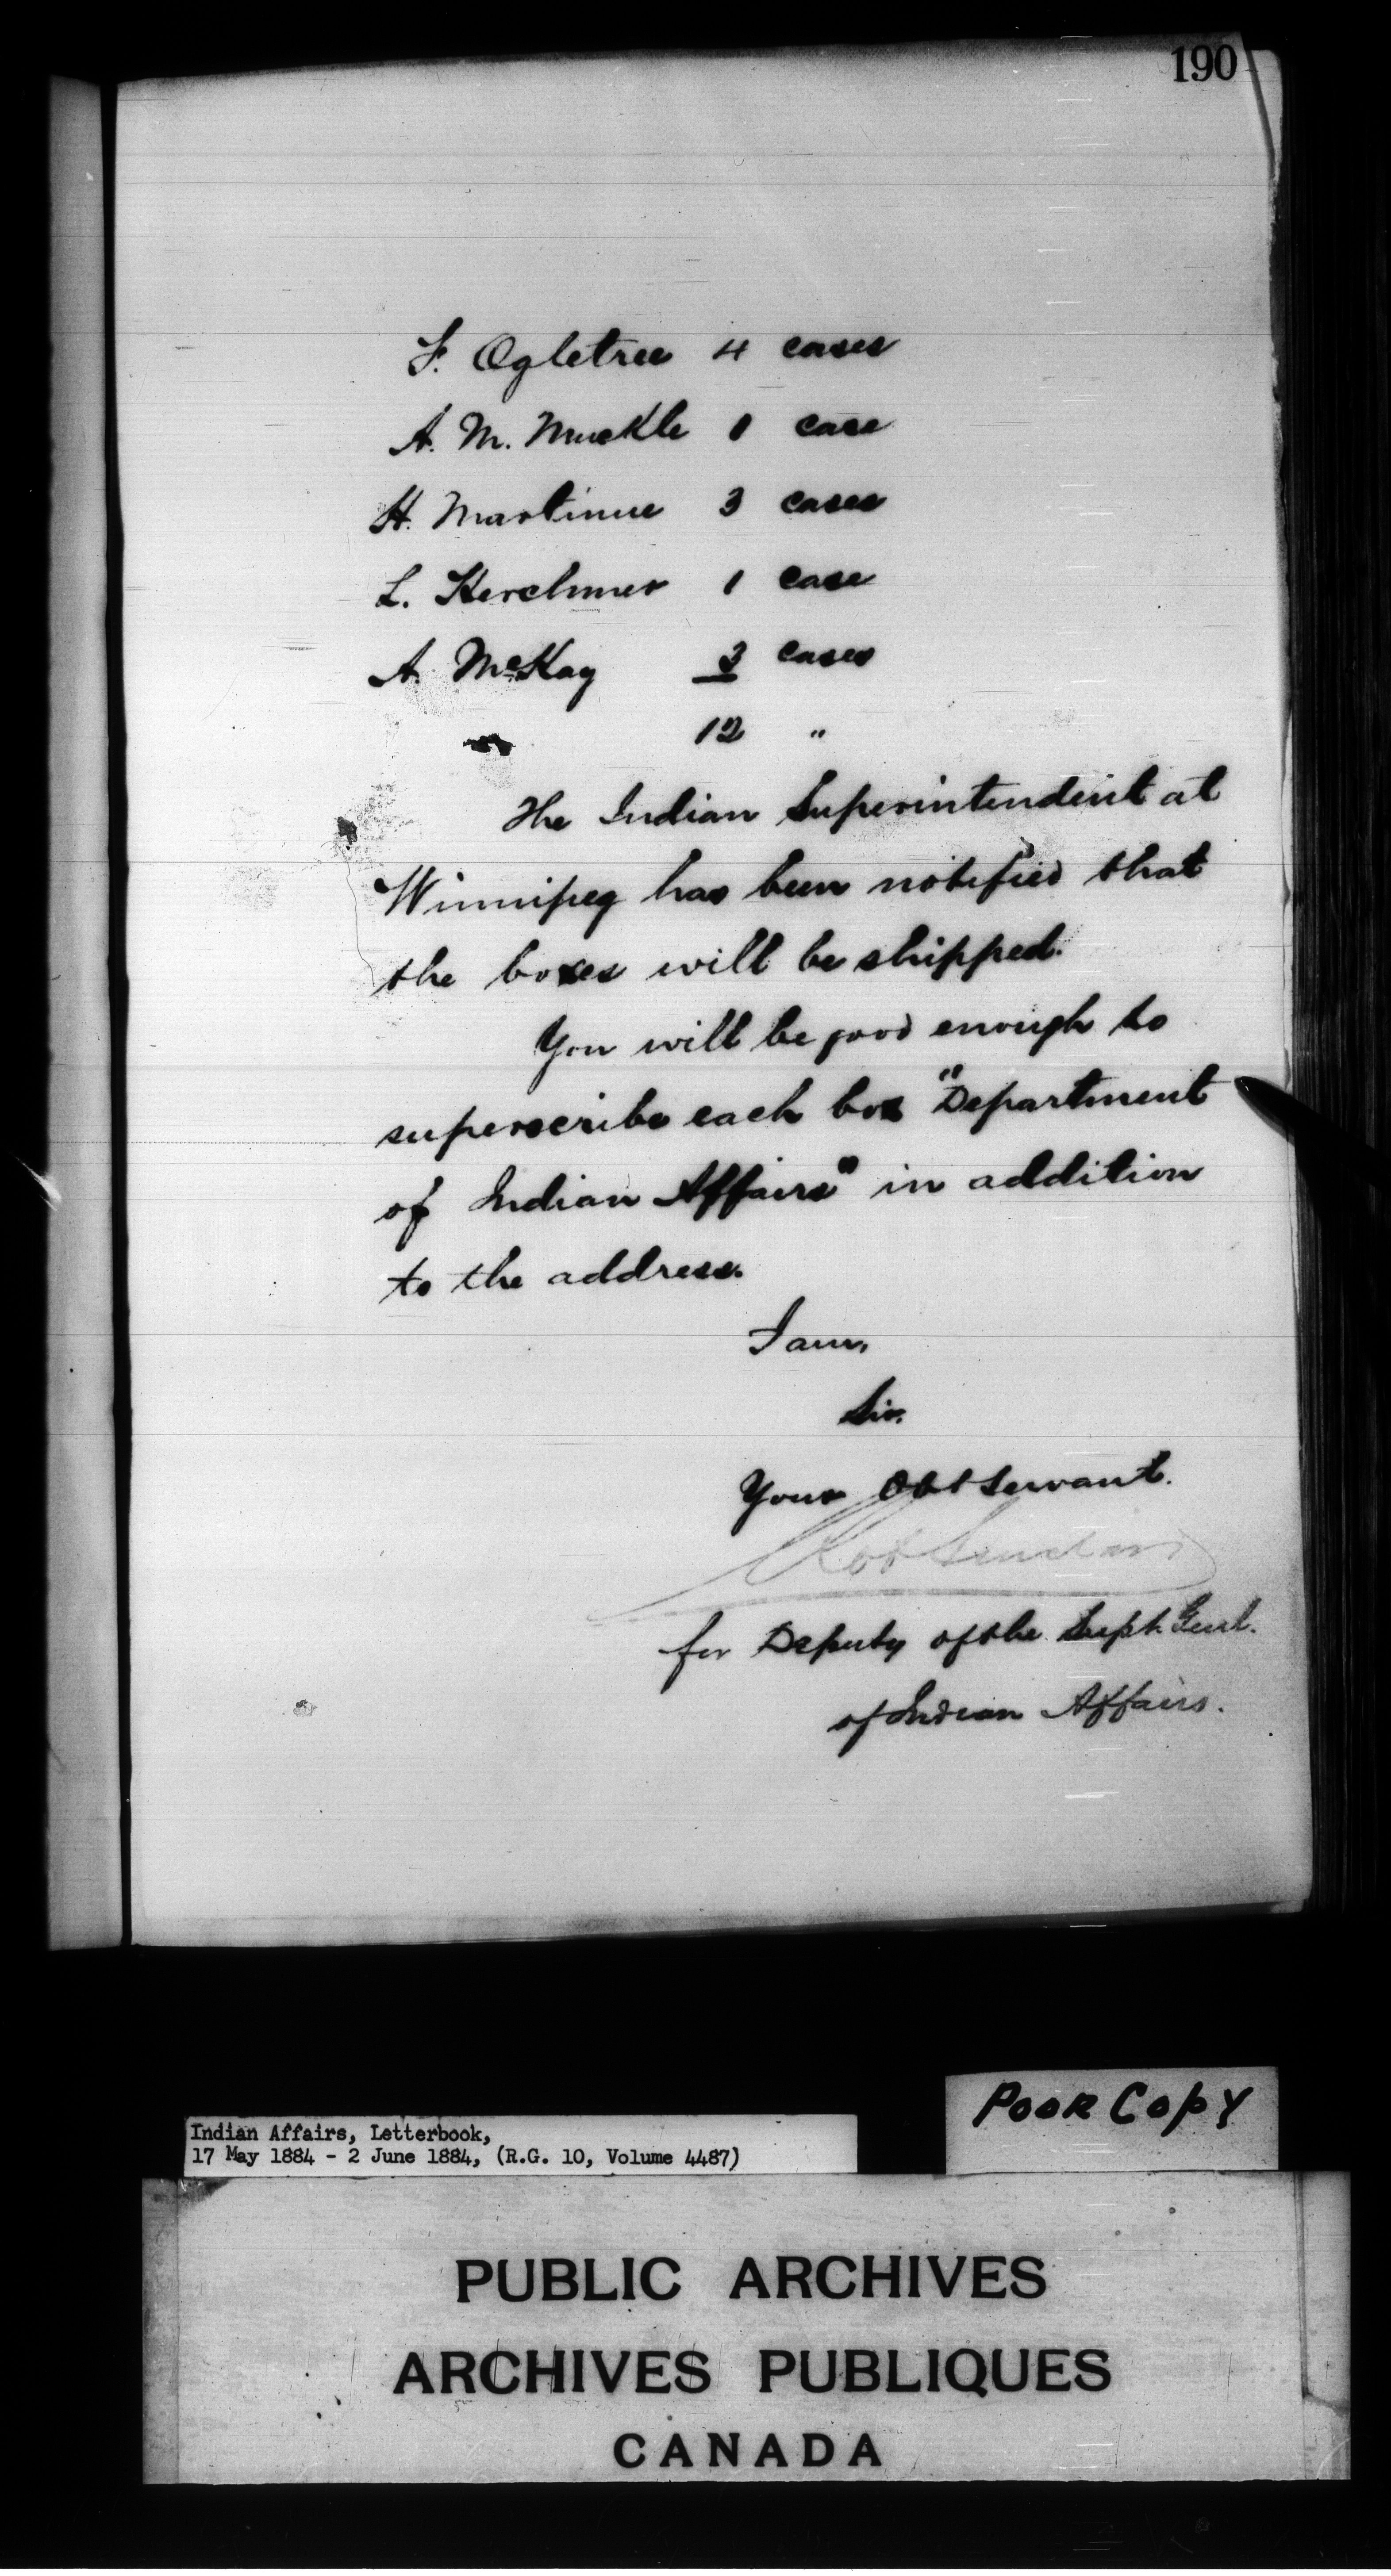 190
F. Ogletree 4 cases
A. M. Muckle 1 case
H. Martinue 3 cases
L. Herchmer 1 case
A. McKay 3 cases
12 "
The Indian Superintendent at
Winnipeg has been notified that
the boxes will be shipped.
You will be good enough to
superscribe each box "Department
of Indian Affairs" in addition
to the address.
I am,
Sir,
Your Obt Servant.
Rob Sinclair
for Deputy of the Supt. Genl.
of Indian Affairs.
POOR COPY
Indian Affairs, Letterbook,
17 May 1884 - 2 June 1884, (R.G. 10, Volume 4487)
PUBLIC ARCHIVES
ARCHIVES PUBLIQUES
CANADA